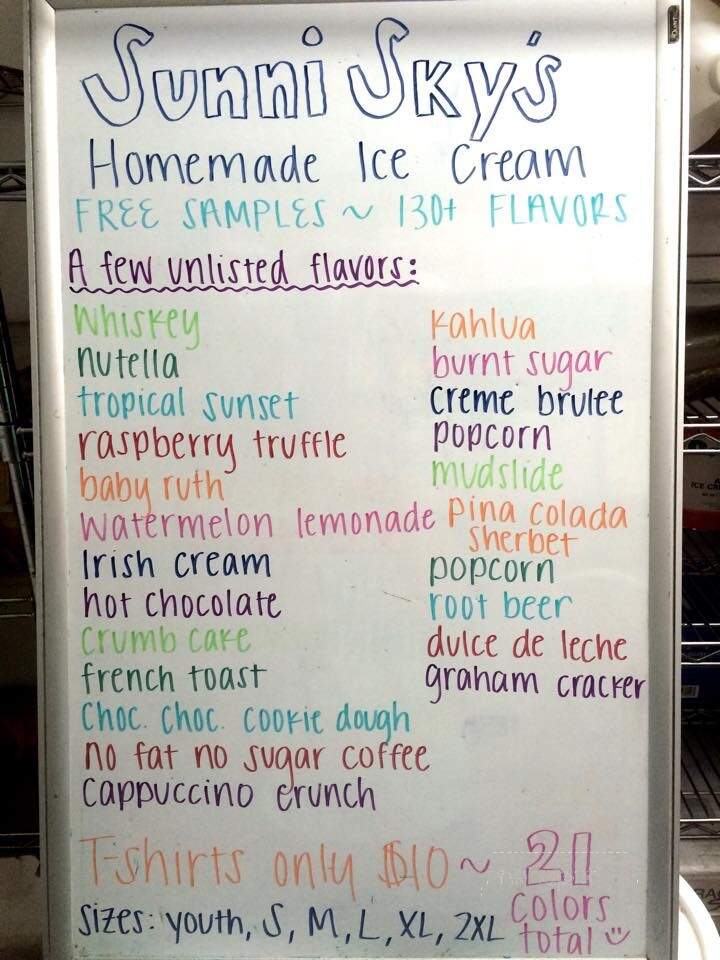 Sunni Sky's
Homemade Ice Cream
FREE SAMPLES ~ 130+ FLAVORS
A few unlisted flavors:
Whiskey
nutella
tropical sunset
raspberry truffle
baby ruth
watermelon lemonade
Irish cream
hot chocolate
crumb cake
french toast
choc. choc. cookie dough
no fat no sugar coffee
cappuccino crunch
kahlua
burnt sugar
creme brulee
popcorn
mudslide
pina colada
sherbet
popcorn
root beer
dulce de leche
graham cracker
T-shirts only $10 ~ 21
colors
total
sizes: youth, S, M, L, XL, 2XL